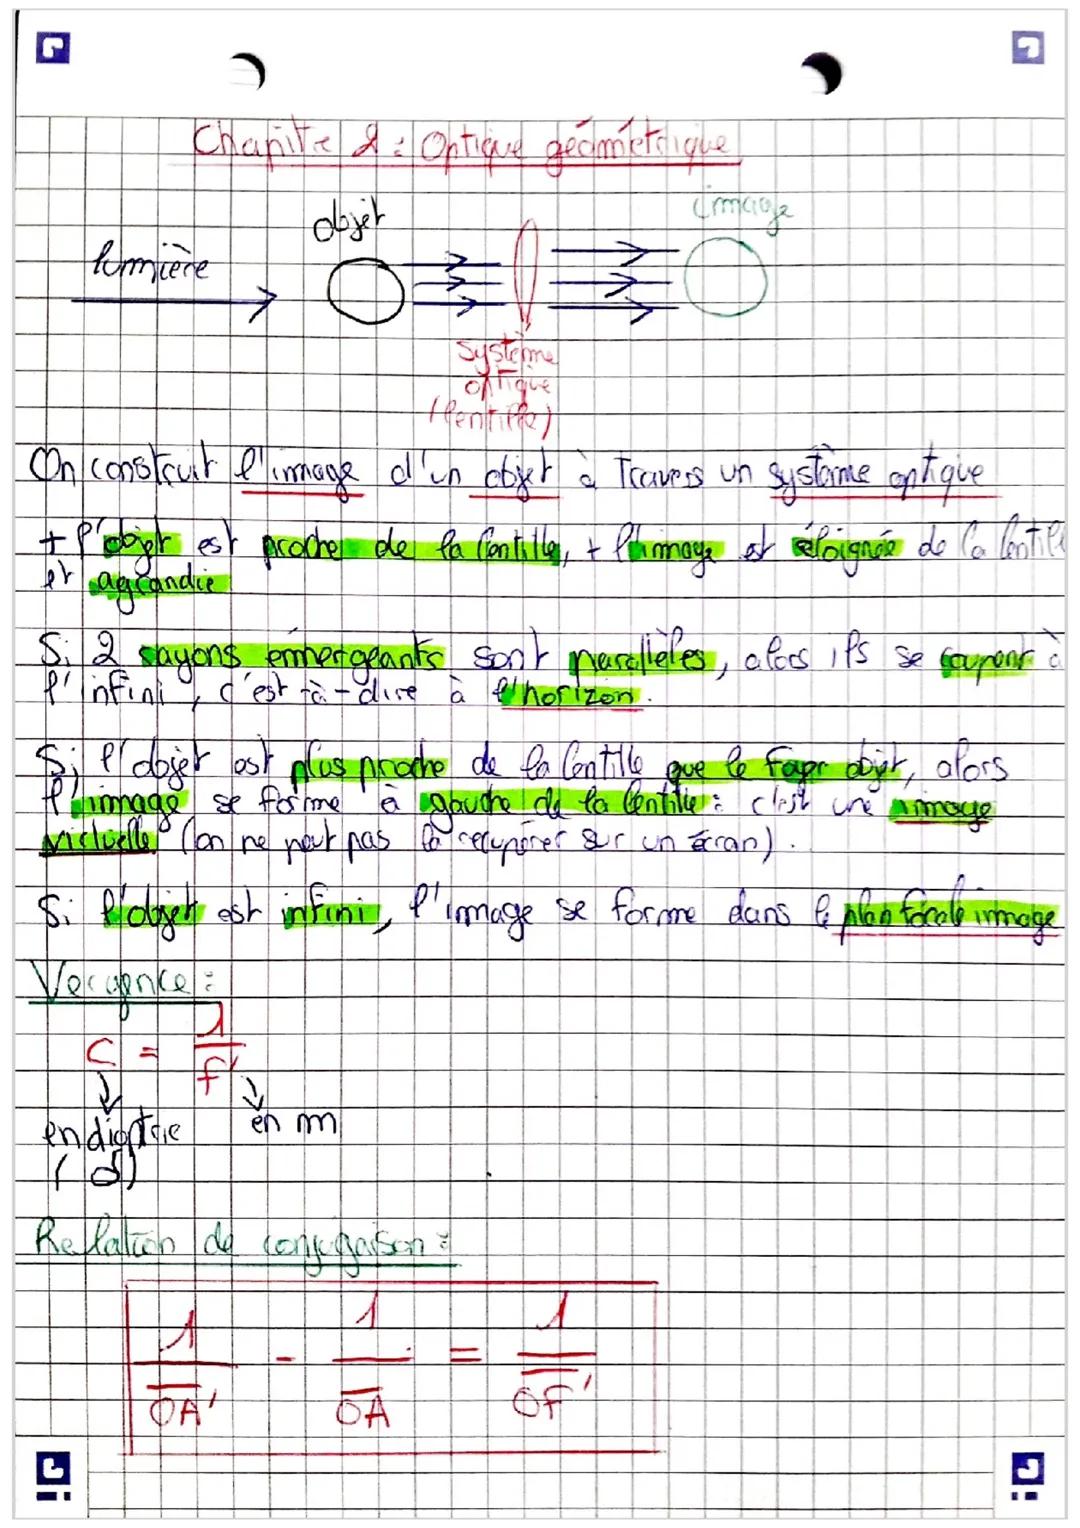 Chapitre 2 : Optique géométrique
objet
image
lumière
système
optique
(lentille)
On construit l'image d'un objet à travers un système optique
+ l'objet est proche de la lentille, + l'image est éloignée de la lentille
et agrandie
Si 2 rayons émhergeants sont parallèles, alors ils se coupent à
l'infini, c'est-à-dire à l'horizon.
Si l'objet est plus proche de la lentille que le foyr objet, alors
l'image se forme à gauche de la lentille : c'est une image
virtuelle (on ne peut pas la récupérer sur un écran).
Si l'objet est infini, l'image se forme dans le plan focale image
Vergence :
C = 1/f'
en dioptrie
en m
(δ)
Relation de conjugaison :
1/O̅A̅' - 1/O̅A̅ = 1/O̅F̅'